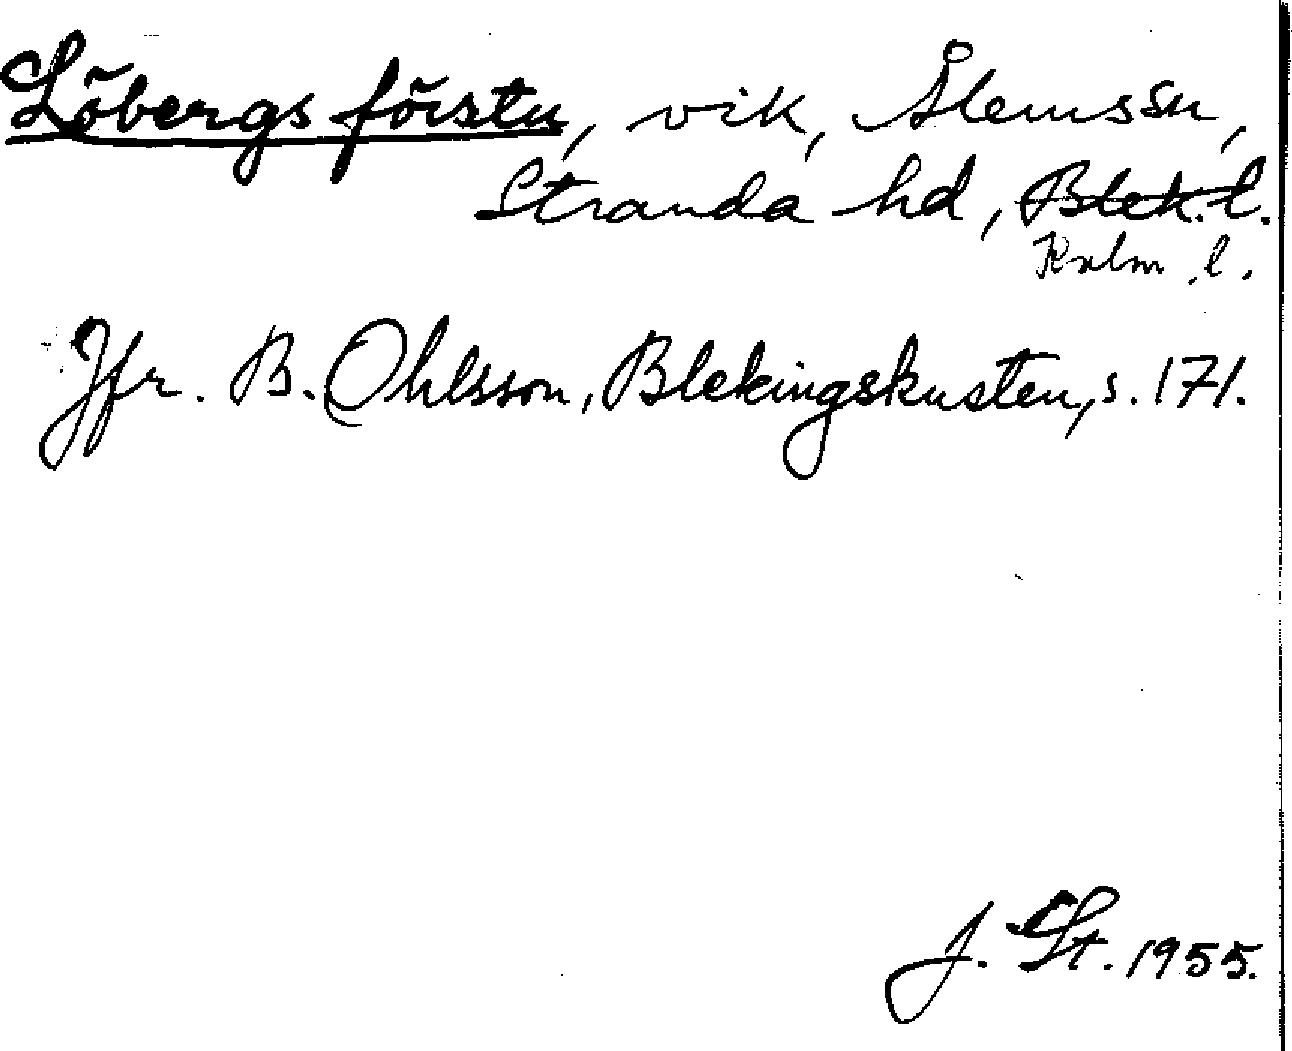 Löbergs förstu, vik, Ålems sn,
Stranda hd, Blek. l.
Kalm. l.
Jfr. B. Ohlsson, Blekingskusten, s. 171.
J. St. 1955.